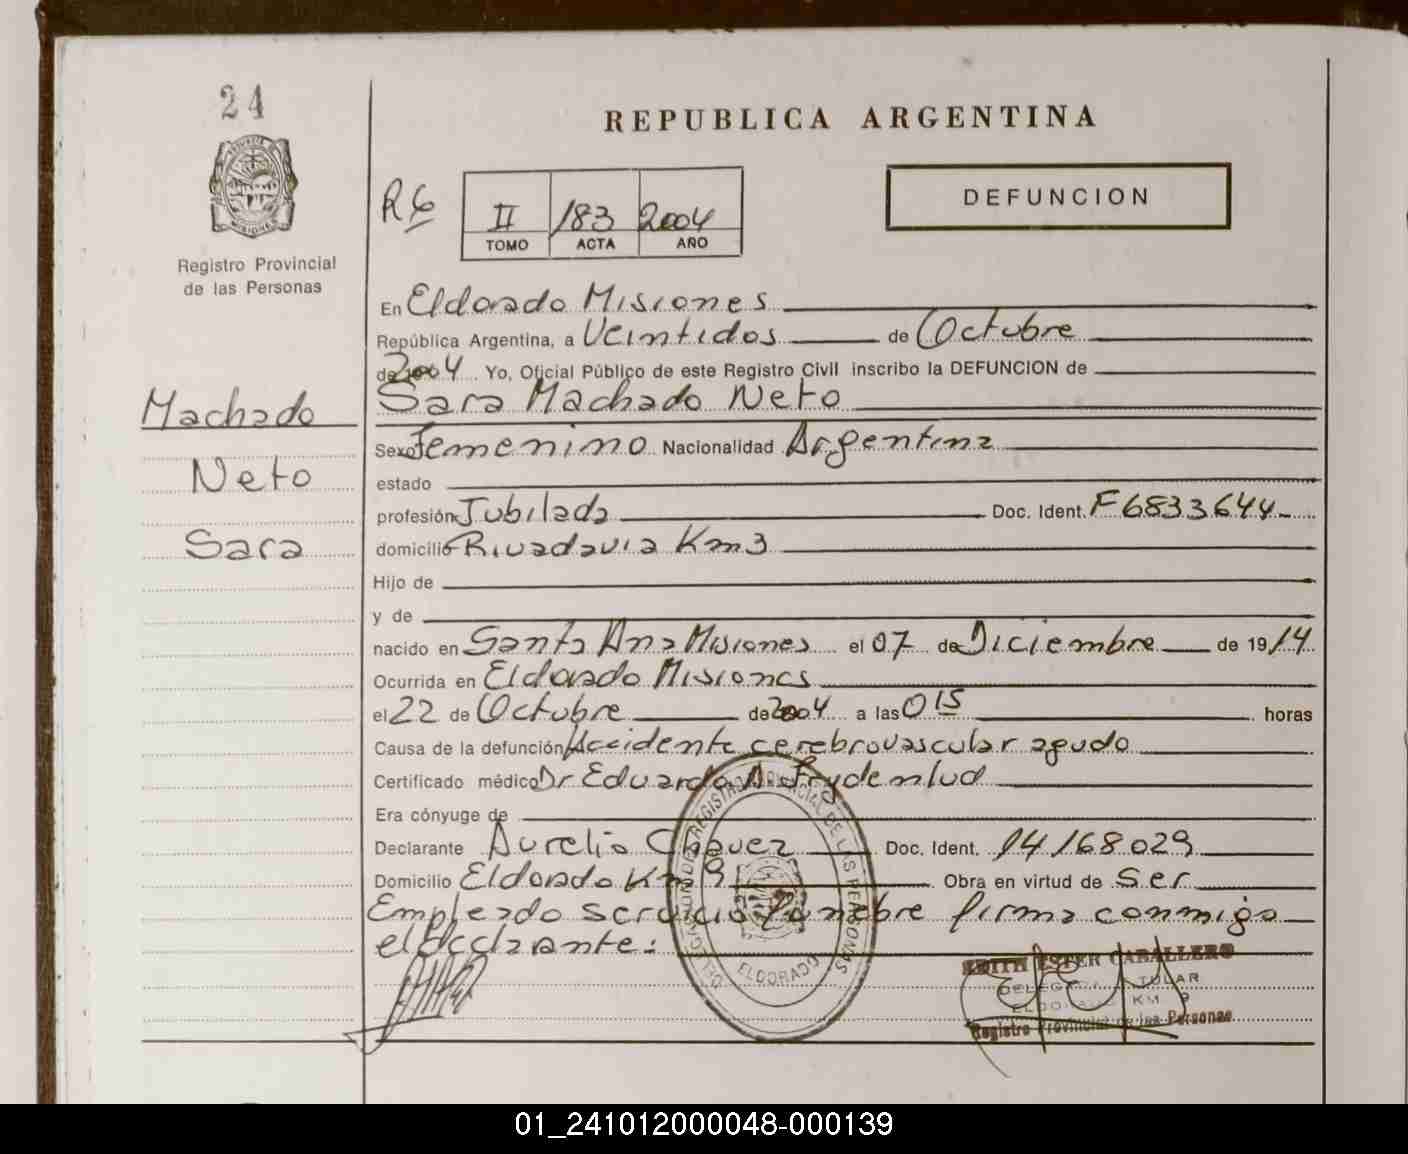 24
REPUBLICA ARGENTINA
Registro Provincial
de las Personas
II 183 2004
TOMO ACTA AÑO
DEFUNCION
En Eldorado Misiones
República Argentina, a Veintidos de Octubre
de 2004 Yo, Oficial Público de este Registro Civil inscribo la DEFUNCION de
Machado
Neto
Sara
Sara Machado Neto
Sexo Femenino Nacionalidad Argentina
estado
profesión Jubilada Doc. Ident. F6833644
domicilio Rivadavia Km3
Hijo de
y de
nacido en Santa Ana Misiones el 07 de Diciembre de 1914
Ocurrida en Eldorado Misiones
el 22 de Octubre de 2004 a las 015 horas
Causa de la defunción Accidente cerebrovascular agudo
Certificado médico Dr Eduardo A
Era cónyuge de
Declarante Aurelio Doc. Ident. 14168029
Domicilio Eldorado Km 9 Obra en virtud de Ser
Empleado servicio funebre firma conmigo
el declarante:
DELEGACION DEL REGISTRO PROVINCIAL DE LAS PERSONAS
ELDORADO
EDITH ESTER CABALLERO
DELEGADA TITULAR
ELDORADO KM 9
Registro Provincial de las Personas
01_241012000048-000139